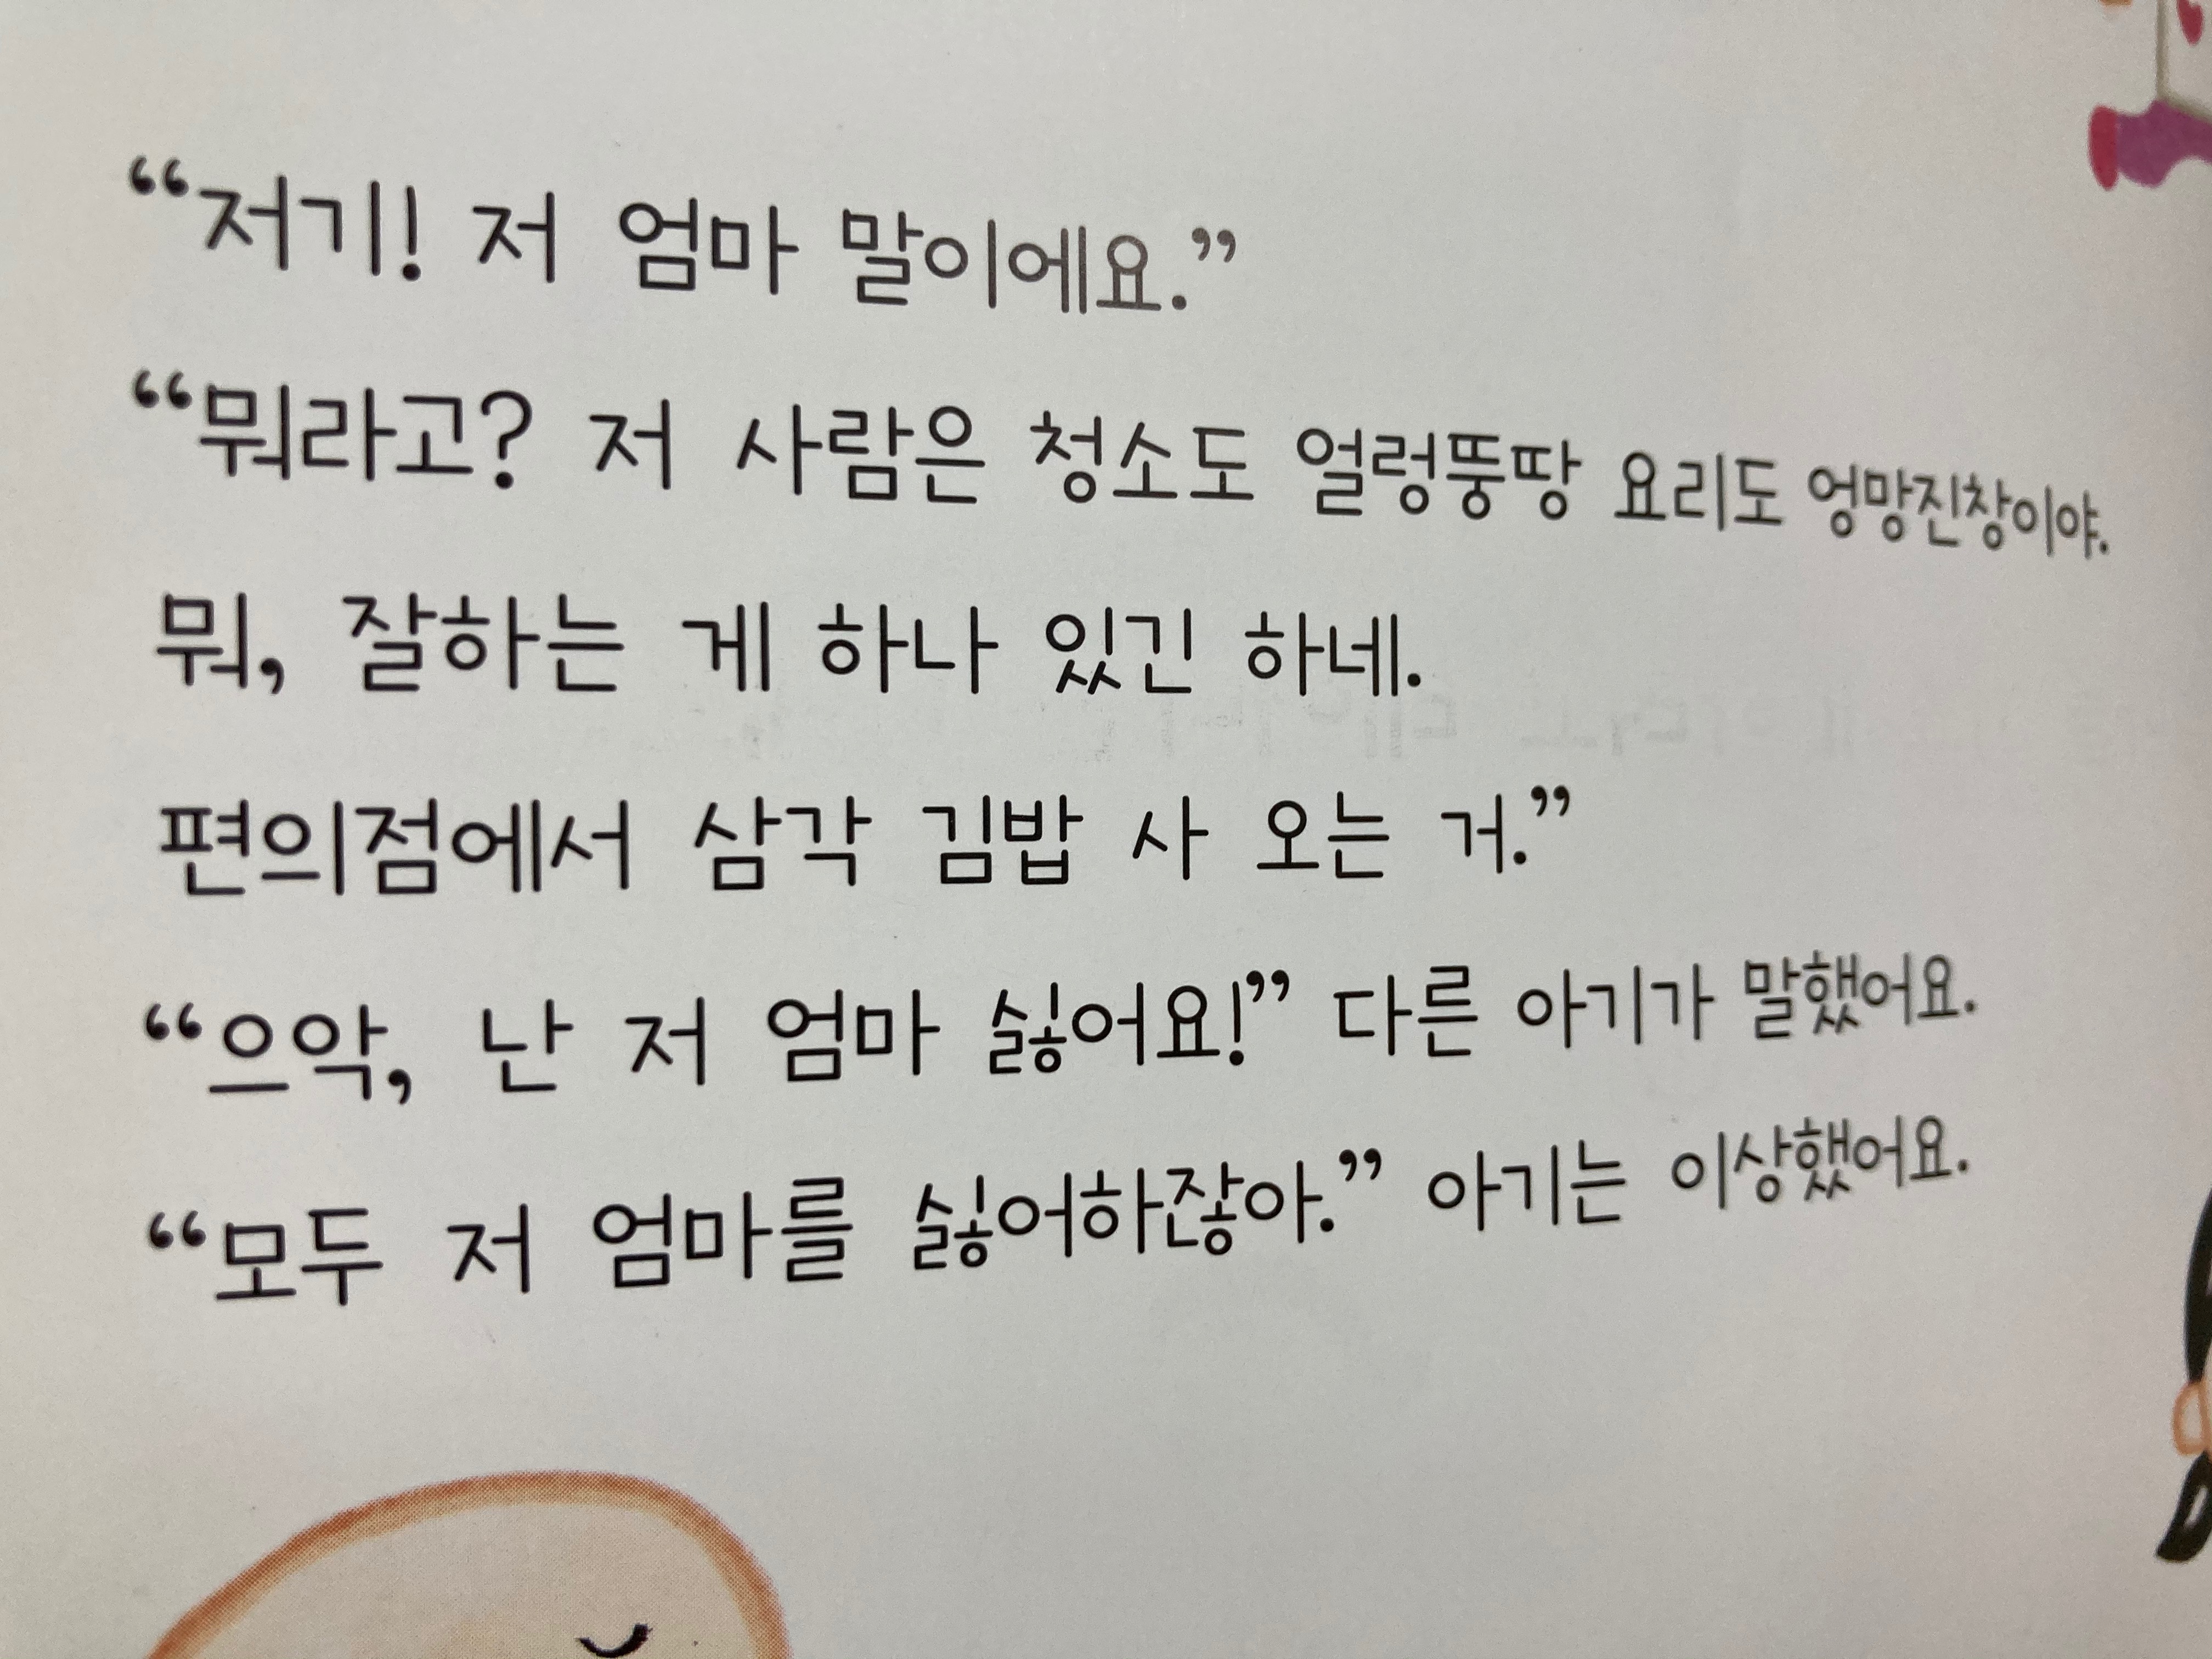 “저기! 저 엄마 말이에요.”
“뭐라고? 저 사람은 청소도 얼렁뚱땅 요리도 엉망진창이야.
뭐, 잘하는 게 하나 있긴 하네.
편의점에서 삼각 김밥 사 오는 거.”
“으악, 난 저 엄마 싫어요!” 다른 아기가 말했어요.
“모두 저 엄마를 싫어하잖아.” 아기는 이상했어요.